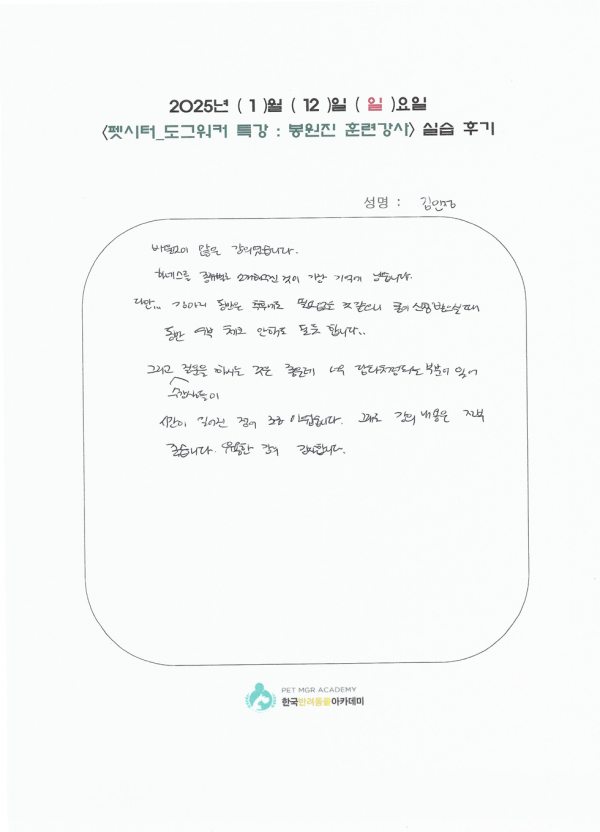 2025년 ( 1 )월 ( 12 )일 ( 일 )요일
<펫시터_도그워커 특강 : 봉원진 훈련강사> 실습 후기
성명 : 김인정
많은 강의였습니다.
하네스를 종류별로 소개해주신 것이 가장 기억에 남습니다.
다만,, 강아지 동반은 필요없을 것 같으니 신청 받으실 때
동반 여부 체크 안해도 될듯 합니다..
그리고 질문을 하시는 것은 좋은데 너무 부분이 있어
수강생들이
시간이 길어진 점이 조금 아쉽습니다. 그래도 강의 내용은 전부
좋습니다. 유용한 강의 감사합니다.
PET MGR ACADEMY
한국반려동물아카데미